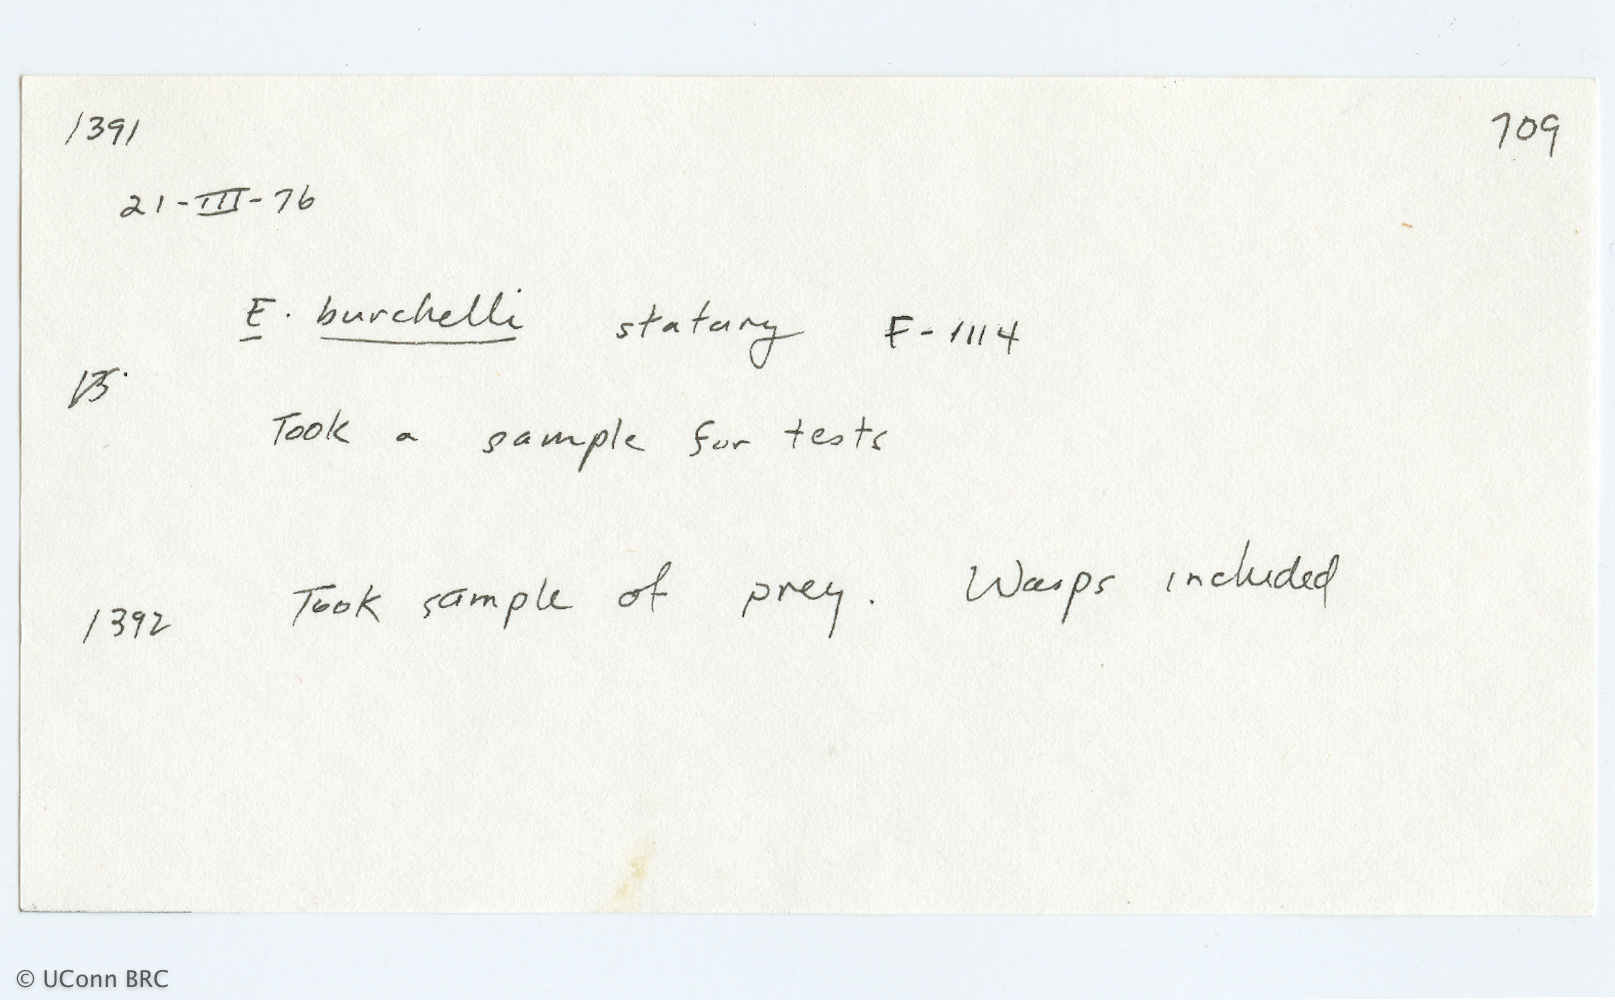 1391 709
21-III-76
E. burchelli statary F-1114
Took a sample for tests
1392 Took sample of prey. Wasps included
© UConn BRC